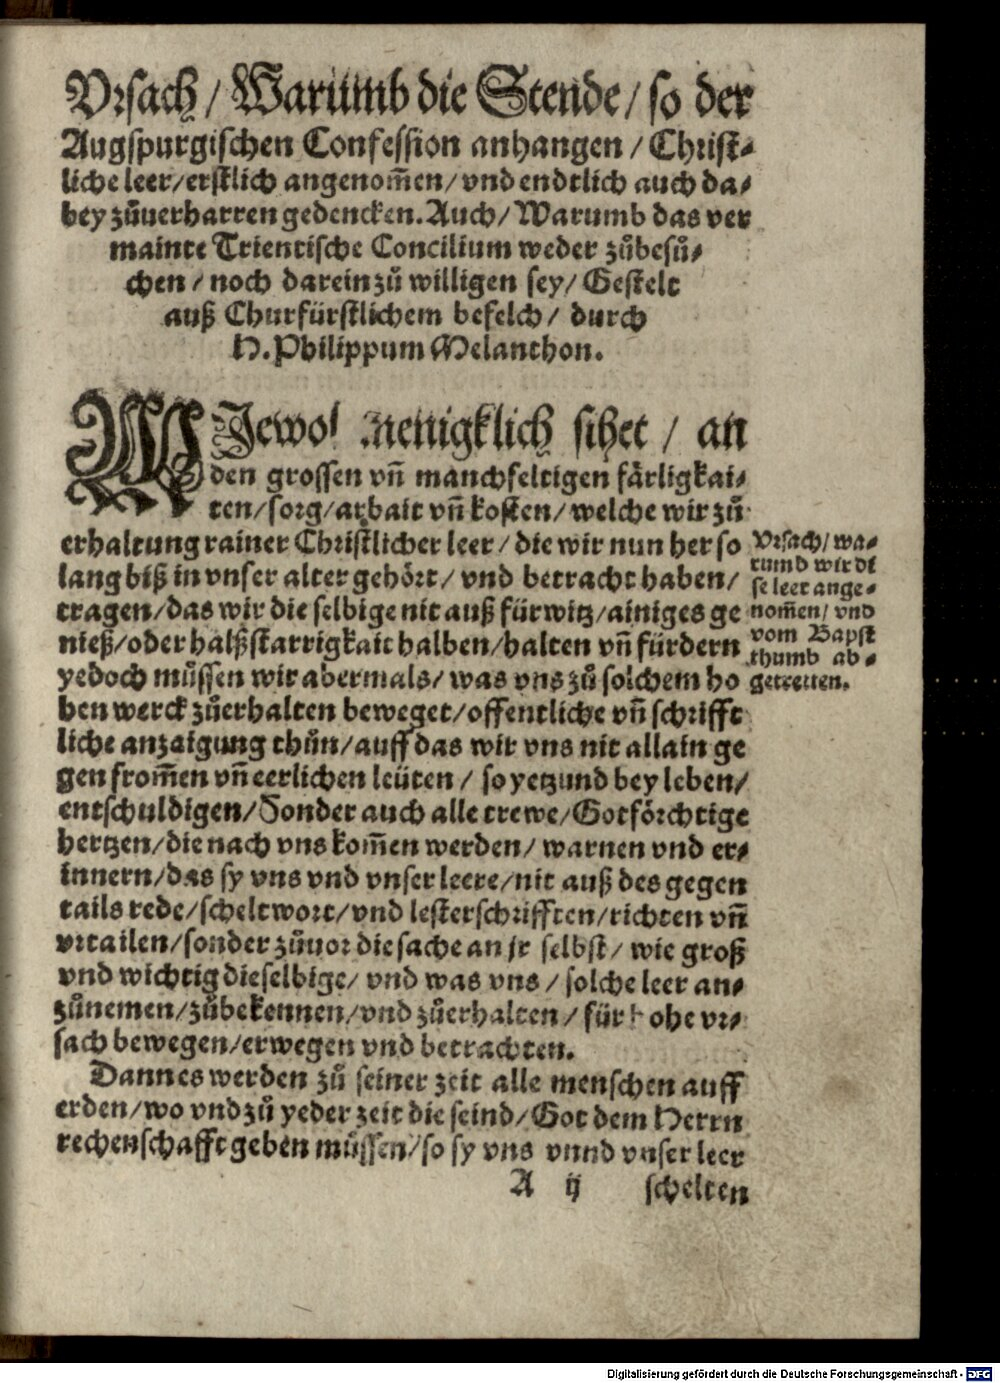 Vrsach / Warumb die Stende / so der
Augspurgischen Confession anhangen / Christ⸗
liche leer / erstlich angenom̃en / vnd endtlich auch da⸗
bey zůuerharren gedencken. Auch / Warumb das ver
mainte Trientische Concilium weder zůbesů⸗
chen / noch darein zů willigen sey / Gestelt
auß Churfürstlichem befelch / durch
H. Philippum Melanthon.
WJewol menigklich sihet / an
den grossen vñ manchfeltigen färligkai⸗
ten / sorg / arbait vñ kosten / welche wir zů
erhaltung rainer Christlicher leer / die wir nun her so
lang biß in vnser alter gehört / vnd betracht haben /
tragen / das wir die selbige nit auß fürwitz / ainiges ge
nieß / oder halßstarrigkait halben / halten vñ fürdern
yedoch můssen wir abermals / was vns zů solchem ho
hen werck zůerhalten beweget / offentliche vñ schrifft
liche anzaigung thůn / auff das wir vns nit allain ge
gen from̃en vñ eerlichen leüten / so yetzund bey leben /
entschuldigen / Sonder auch alle trewe / Gotförchtige
hertzen / die nach vns kom̃en werden / warnen vnd er⸗
innern / das sy vns vnd vnser leere / nit auß des gegen
tails rede / scheltwort / vnd lesterschrifften / richten vñ
vrtailen / sonder zůuor die sache an jr selbst / wie groß
vnd wichtig dieselbige / vnd was vns / solche leer an⸗
zůnemen / zůbekennen / vnd zůerhalten / für hohe vr⸗
sach bewegen / erwegen vnd betrachten.
Dann es werden zů seiner zeit alle menschen auff
erden / wo vnd zů yeder zeit die seind / Got dem Herrn
rechenschafft geben můssen / so sy vns vnnd vnser leer
A ij schelten
Vrsach / wa⸗
rumb wir di
se leer ange⸗
nom̃en / vnd
vom Bapst
thumb ab⸗
getretten.
Digitalisierung gefördert durch die Deutsche Forschungsgemeinschaft - DFG